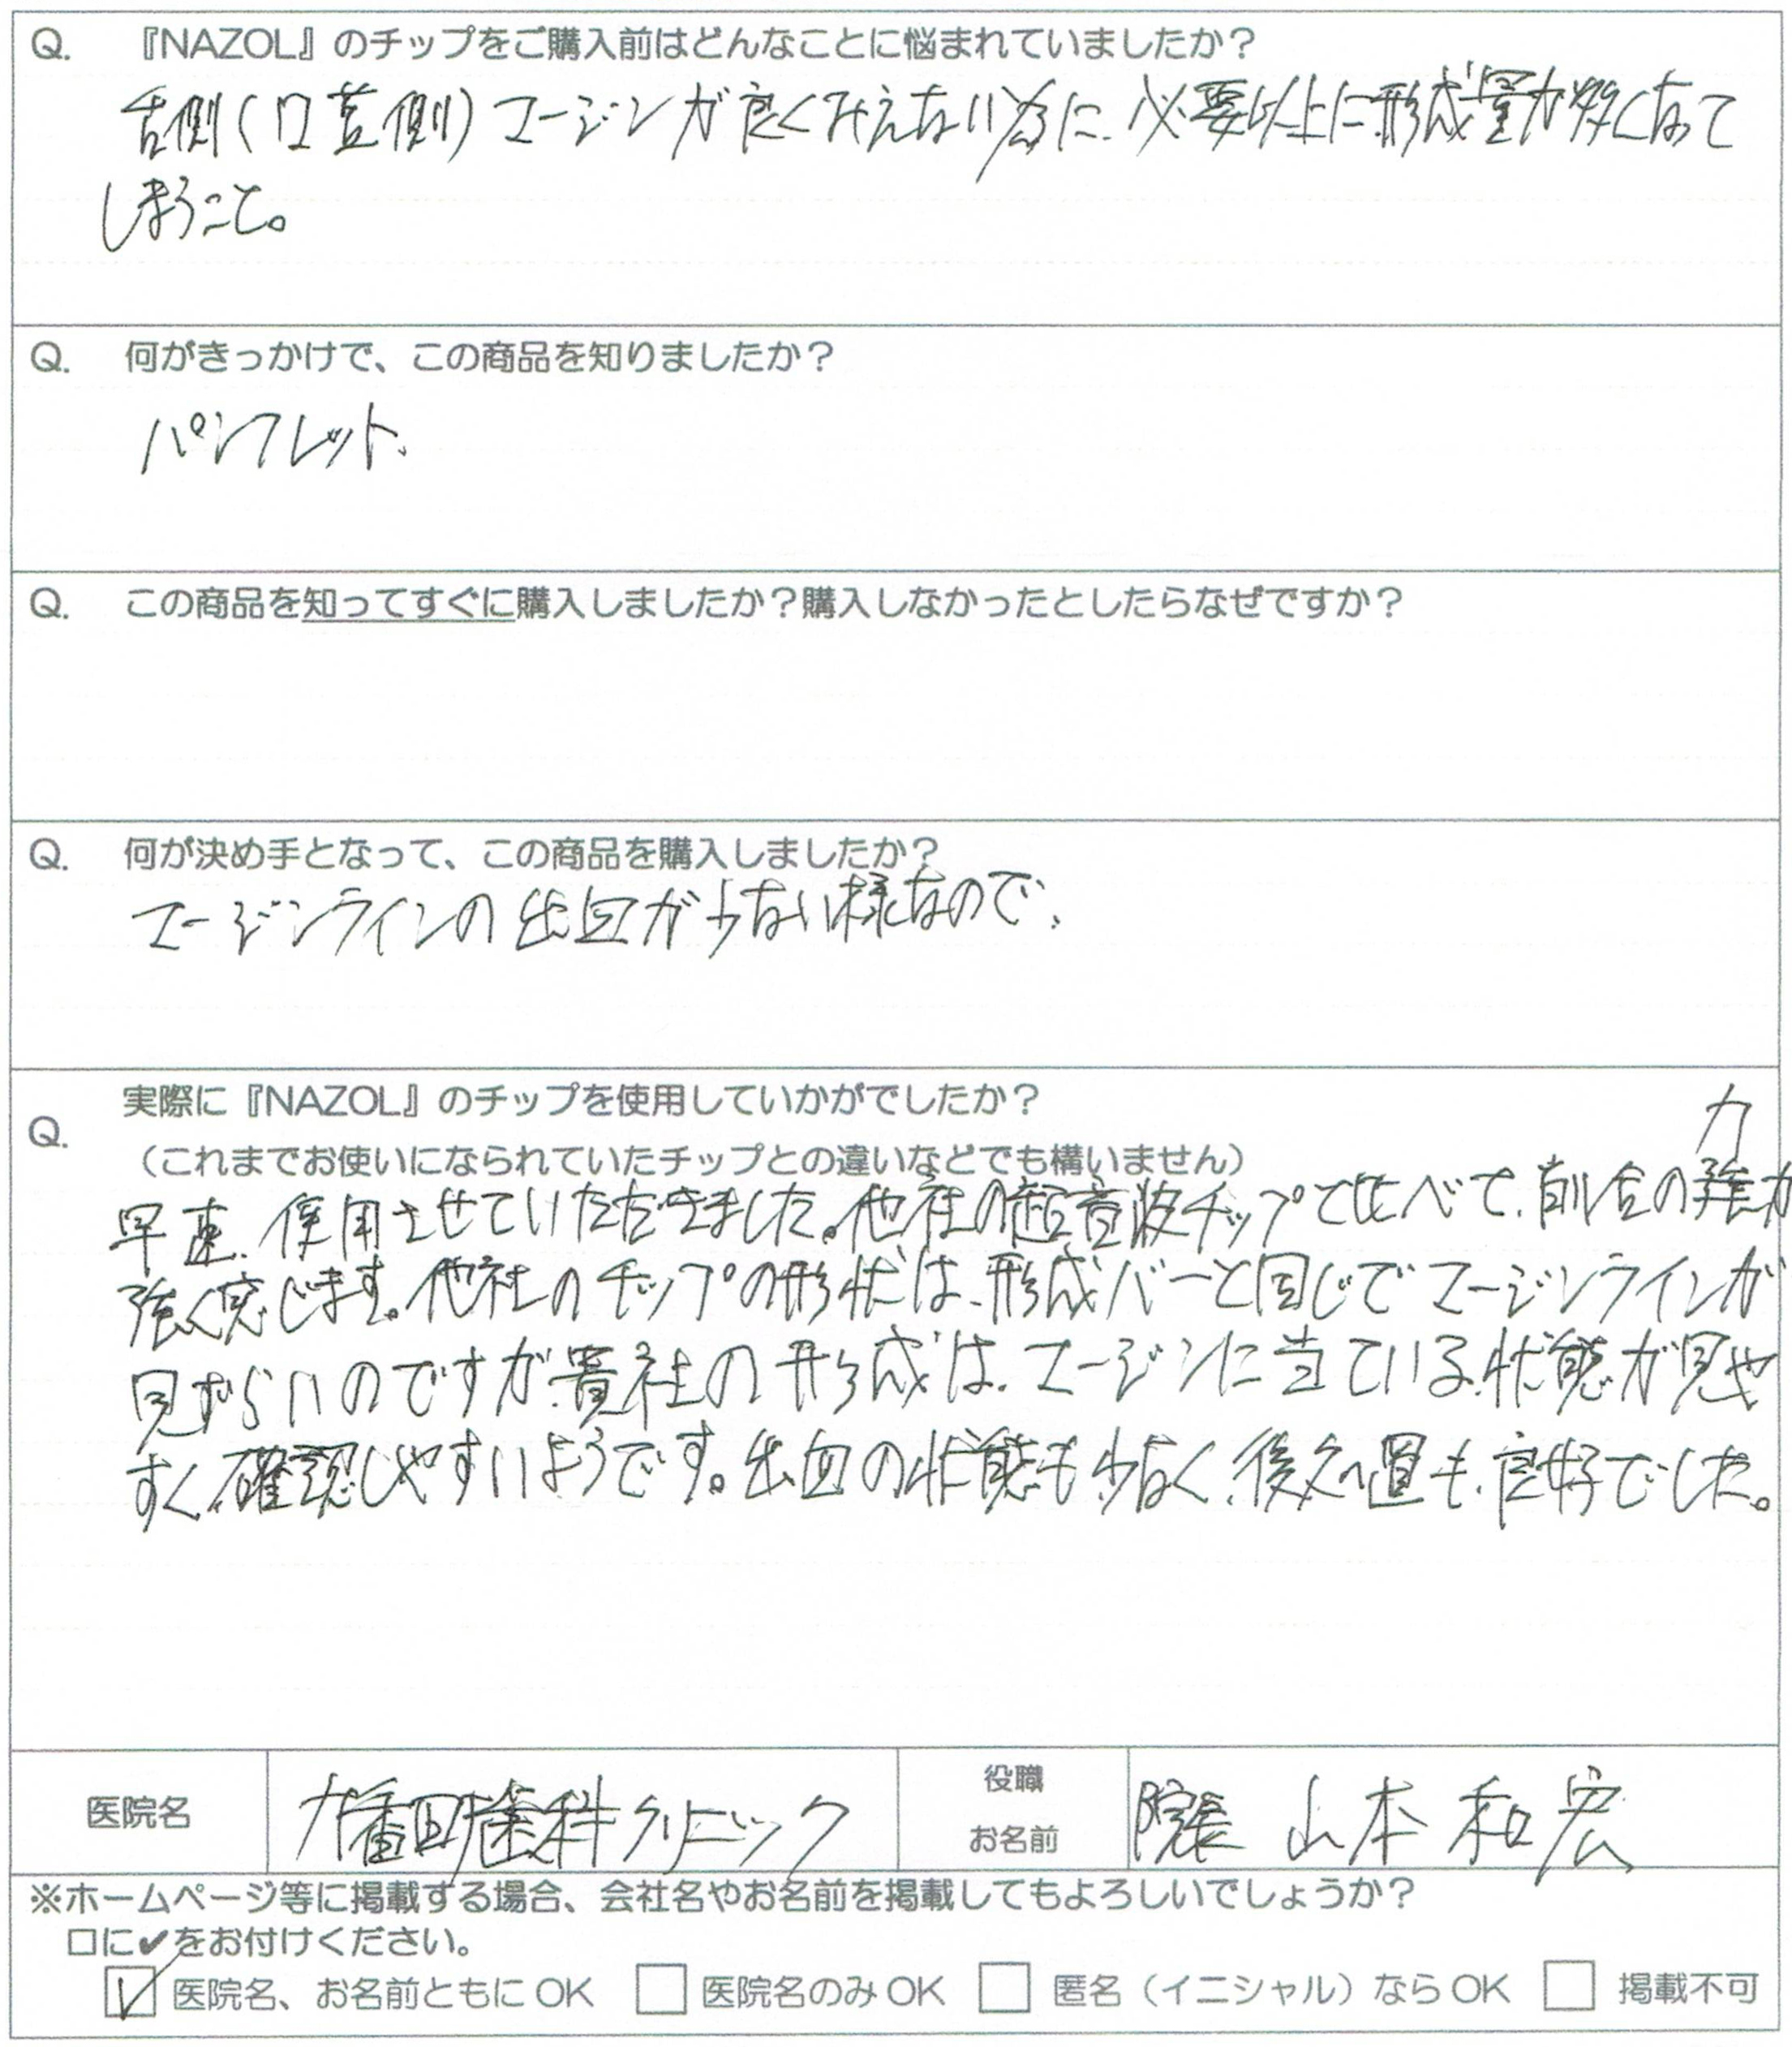 Q. 『NAZOL』のチップをご購入前はどんなことに悩まれていましたか？
舌側（口蓋側）マージンが良くみえない為に、必要以上に形成量が多くなって
しまうこと。
Q. 何がきっかけで、この商品を知りましたか？
パンフレット、
Q. この商品を知ってすぐに購入しましたか？購入しなかったとしたらなぜですか？
Q. 何が決め手となって、この商品を購入しましたか？
マージンラインの出血が少ない様なので、
Q. 実際に『NAZOL』のチップを使用していかがでしたか？
（これまでお使いになられていたチップとの違いなどでも構いません）
力
早速、使用させていただきました。他社の超音波チップと比べて、削合の
強く感じます。他社のチップの形状は、形成バーと同じでマージンラインが
見ずらいのですが、貴社の形成は、マージンに当ている状態が見や
すく、確認しやすいようです。出血の状態も少なく、後処置も、良好でした。
医院名 九番町歯科クリニック 役職 お名前 院長 山本 和宏
※ホームページ等に掲載する場合、会社名やお名前を掲載してもよろしいでしょうか？
□に✔をお付けください。
☑ 医院名、お名前ともにOK □ 医院名のみOK □ 匿名（イニシャル）ならOK □ 掲載不可